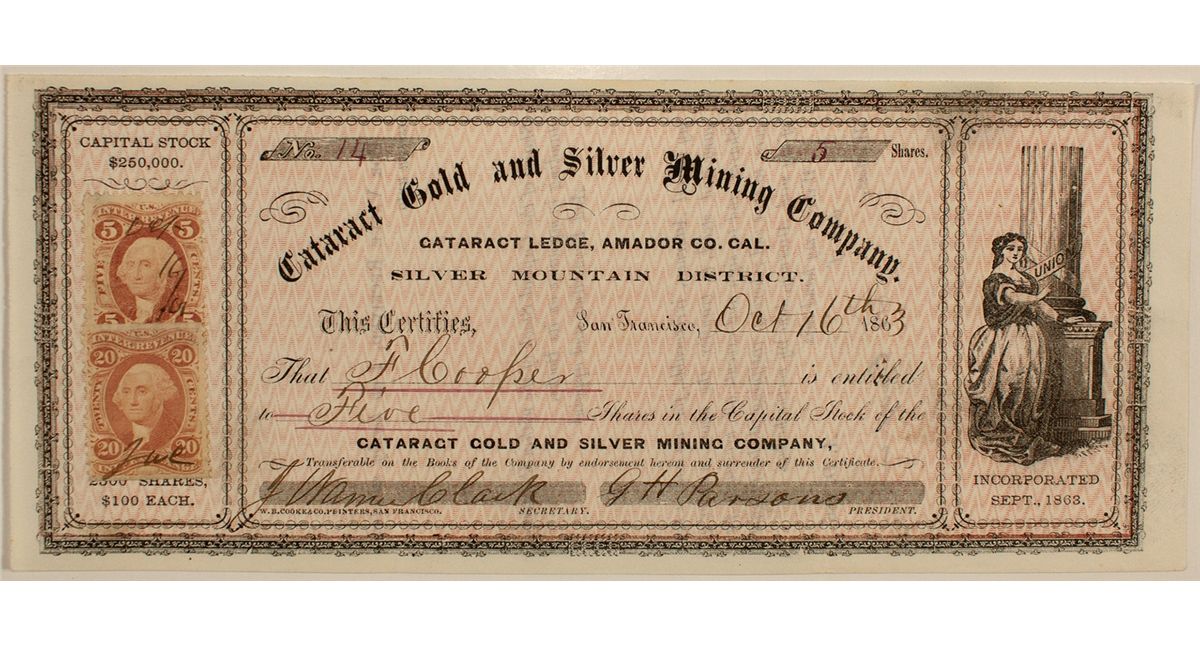 CAPITAL STOCK
$250,000.
U.S.
INTER. REVENUE
5 5
FIVE CENTS.
Oct
16
5 5
U.S.
INTER. REVENUE
20 20
TWENTY CENTS.
20 20
2500 SHARES,
$100 EACH.
No. 14
5 Shares.
Cataract Gold and Silver Mining Company.
CATARACT LEDGE, AMADOR CO. CAL.
SILVER MOUNTAIN DISTRICT.
This Certifies, San Francisco, Oct 16th 1863
That F Cooper is entitled
to Five Shares in the Capital Stock of the
CATARACT GOLD AND SILVER MINING COMPANY,
Transferable on the Books of the Company by endorsement hereon and surrender of this Certificate.
Clark G H Parsons
W. B. COOKE & CO, PRINTERS, SAN FRANCISCO. SECRETARY. PRESIDENT.
UNION
INCORPORATED
SEPT., 1863.